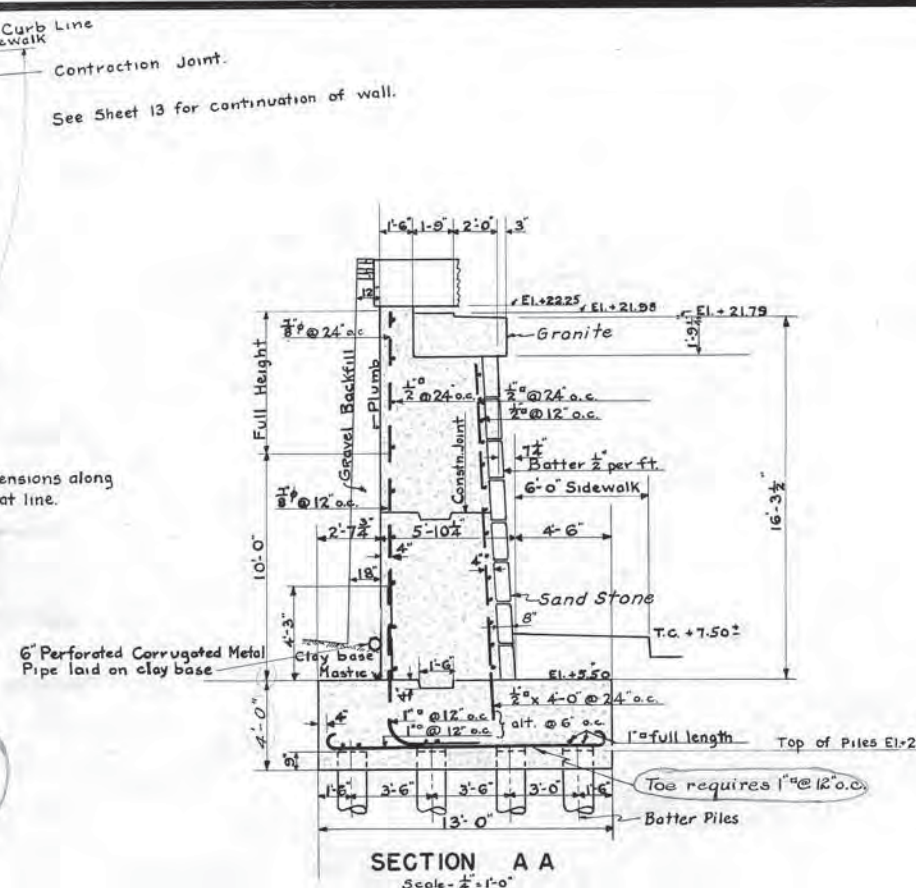 Curb Line
ewalk
Contraction Joint.
See Sheet 13 for continuation of wall.
1'-6" 1'-9" 2'-0" 3"
12"
El.+22.25
El.+21.98
El.+21.79
Granite
1'-9¼"
Full Height
Gravel Backfill
Plumb
½"▫@24"o.c.
½"▫@24"o.c.
½"▫@12"o.c.
Constn. Joint
7¼"
Batter ½" per ft.
6'-0" Sidewalk
16'-3½"
ensions along
at line.
2'-7¾" 5'-10¼" 4'-6"
4"
4"
10'-0"
18"
4'-3"
Sand Stone
8"
T.C. +7.50±
6" Perforated Corrugated Metal
Pipe laid on clay base
Clay base
Mastic
1'-6"
El.+5.50
½"▫ x 4'-0"@24"o.c.
4'-0"
4"
1"▫@12"o.c.
1"▫@12"o.c.
alt. @ 6" o.c.
1"▫full length
Top of Piles El.+2
9"
Toe requires 1"▫@12"o.c.
1'-6" 3'-6" 3'-6" 3'-0" 1'-6"
13'-0"
Batter Piles
SECTION A A
Scale-¼"=1'-0"